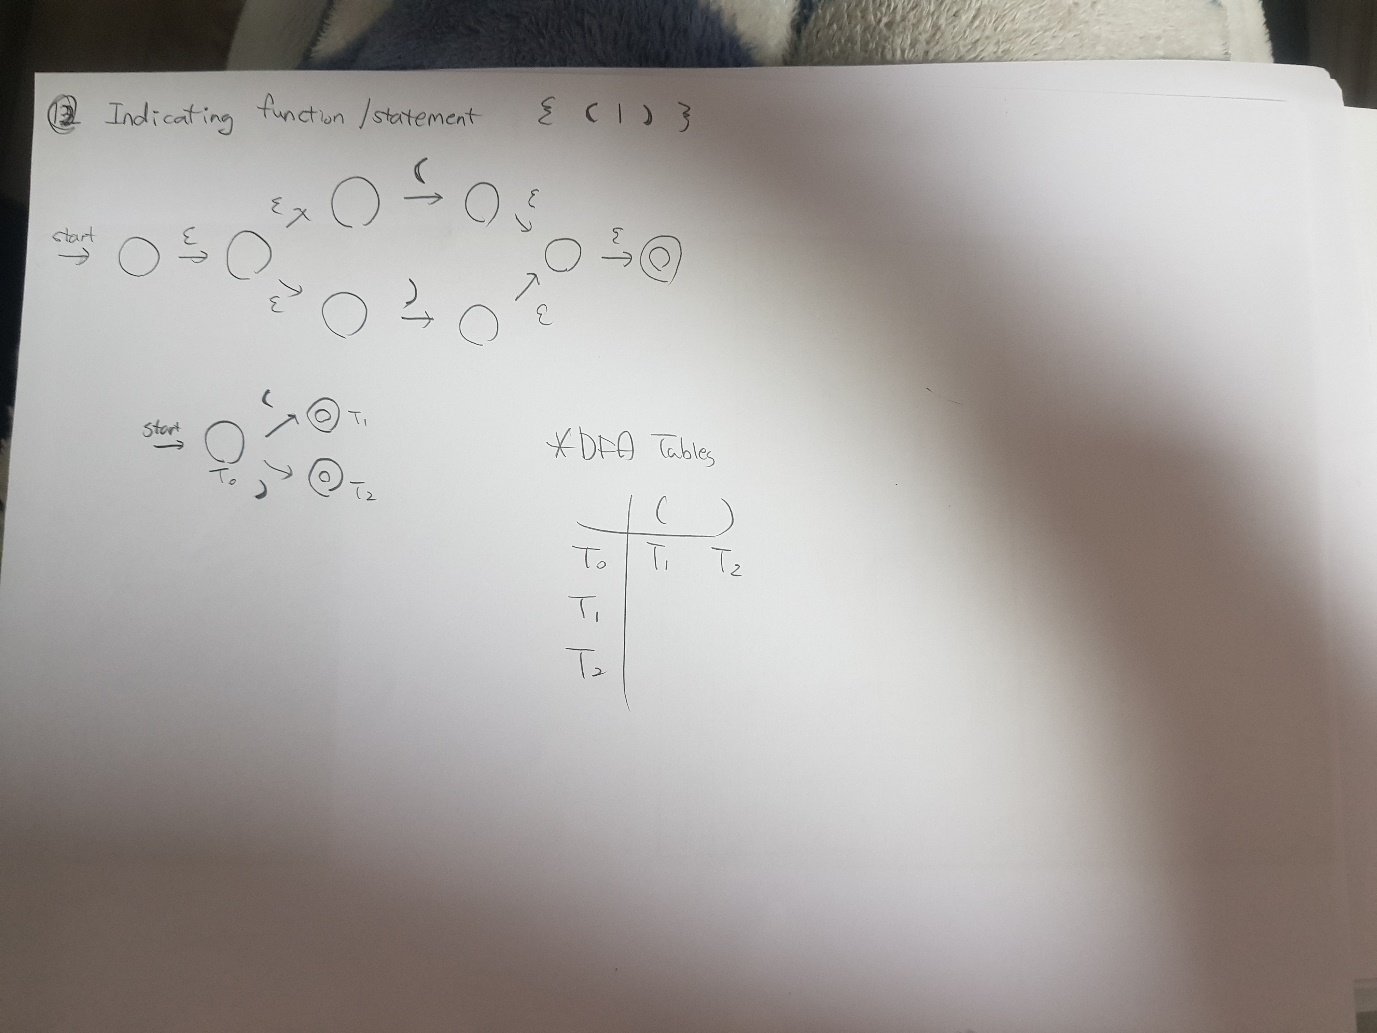 ⑫ Indicating function / statement { ( | ) }
ε ( ε
start ε ε
ε ) ε
( T₁
start
T₀ ) T₂
* DFA Tables
( )
T₀ T₁ T₂
T₁
T₂